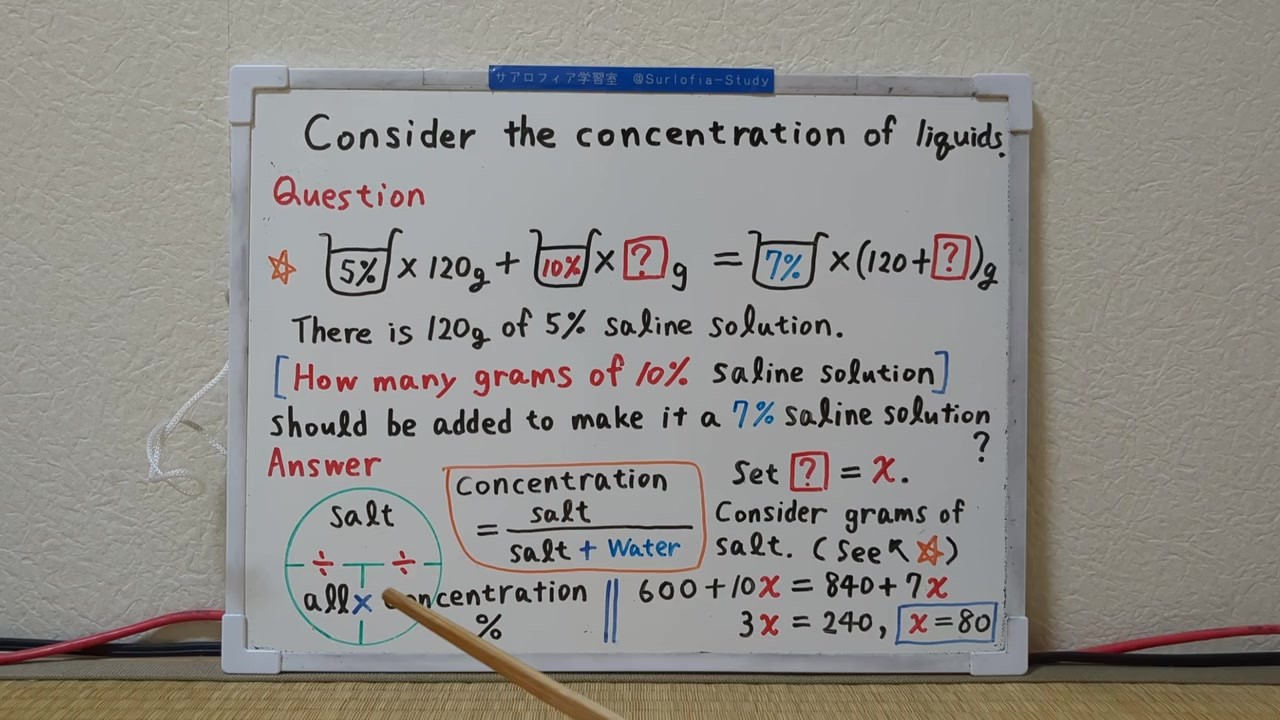 サアロフィア学習室 @Surlofia-Study
Consider the concentration of liquids.
Question
☆ 5% × 120g + 10% × ? g = 7% × (120+?)g
There is 120g of 5% saline solution.
[How many grams of 10% saline solution]
should be added to make it a 7% saline solution
?
Answer
Salt
÷ ÷
all × concentration
%
Concentration
= salt
salt + Water
Set ? = x.
Consider grams of
salt. (See↖☆)
600+10x = 840+7x
3x = 240, x=80